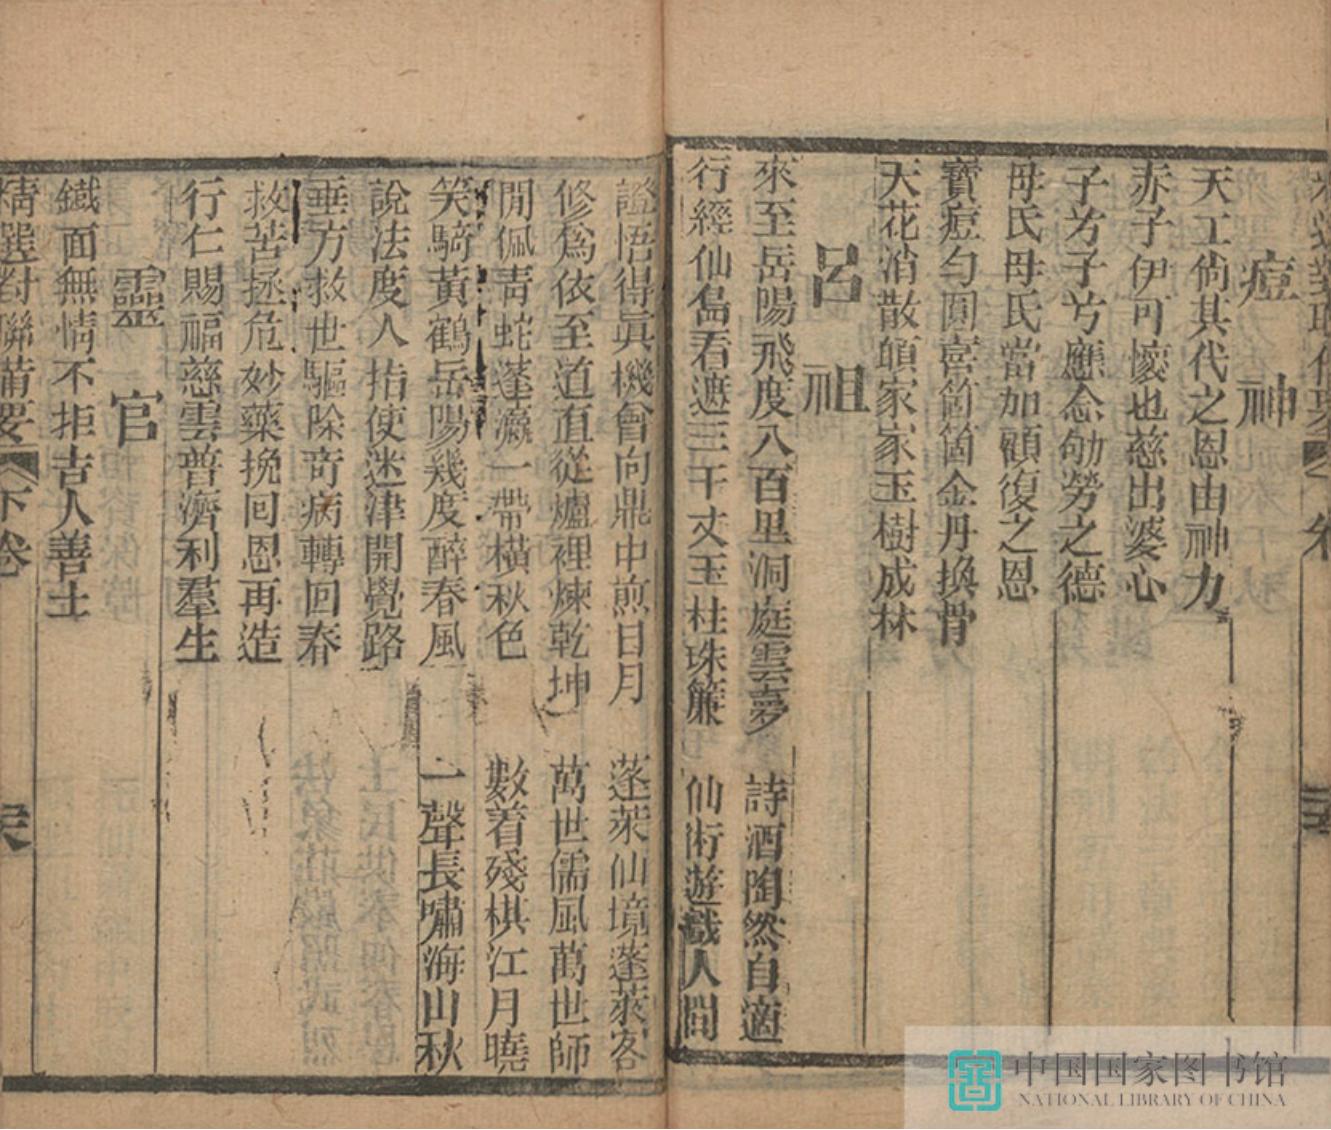 痘神
天工倘其代之恩由神力
赤子伊可懷也慈出婆心
子兮子兮應念劬勞之德
母氏母氏當加顧復之恩
寶痘勻圓喜箇箇金丹換骨
天花消散頌家家玉樹成林
呂祖
來至岳陽飛度八百里洞庭雲夢 詩酒陶然自適
行經仙島看遊三千丈玉柱珠簾 仙術遊戲人間
證悟得眞機會向鼎中煎日月 蓬萊仙境蓬萊客
修爲依至道直從爐裡煉乾坤 萬世儒風萬世師
閒佩青蛇蓬瀛一帶橫秋色 數着殘棋江月曉
笑騎黃鶴岳陽幾度醉春風 一聲長嘯海山秋
說法度人指使迷津開覺路
垂方救世驅除奇病轉回春
救苦拯危妙藥挽回恩再造
行仁賜福慈雲普濟利羣生
靈官
鐵面無情不拒吉人善士
精選對聯備要 下卷
中国国家图书馆
NATIONAL LIBRARY OF CHINA